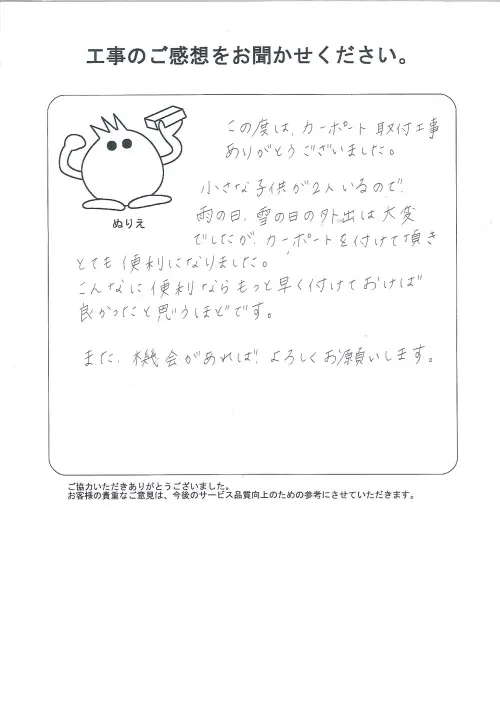 工事のご感想をお聞かせください。
この度は、カーポート取付工事
ありがとうございました。
小さな子供が2人いるので、
雨の日、雪の日の外出は大変
でしたが、カーポートを付けて頂き
とても便利になりました。
こんなに便利ならもっと早く付けておけば
良かったと思うほどです。
また、機会があれば、よろしくお願いします。
ぬりえ
ご協力いただきありがとうございました。
お客様の貴重なご意見は、今後のサービス品質向上のための参考にさせていただきます。